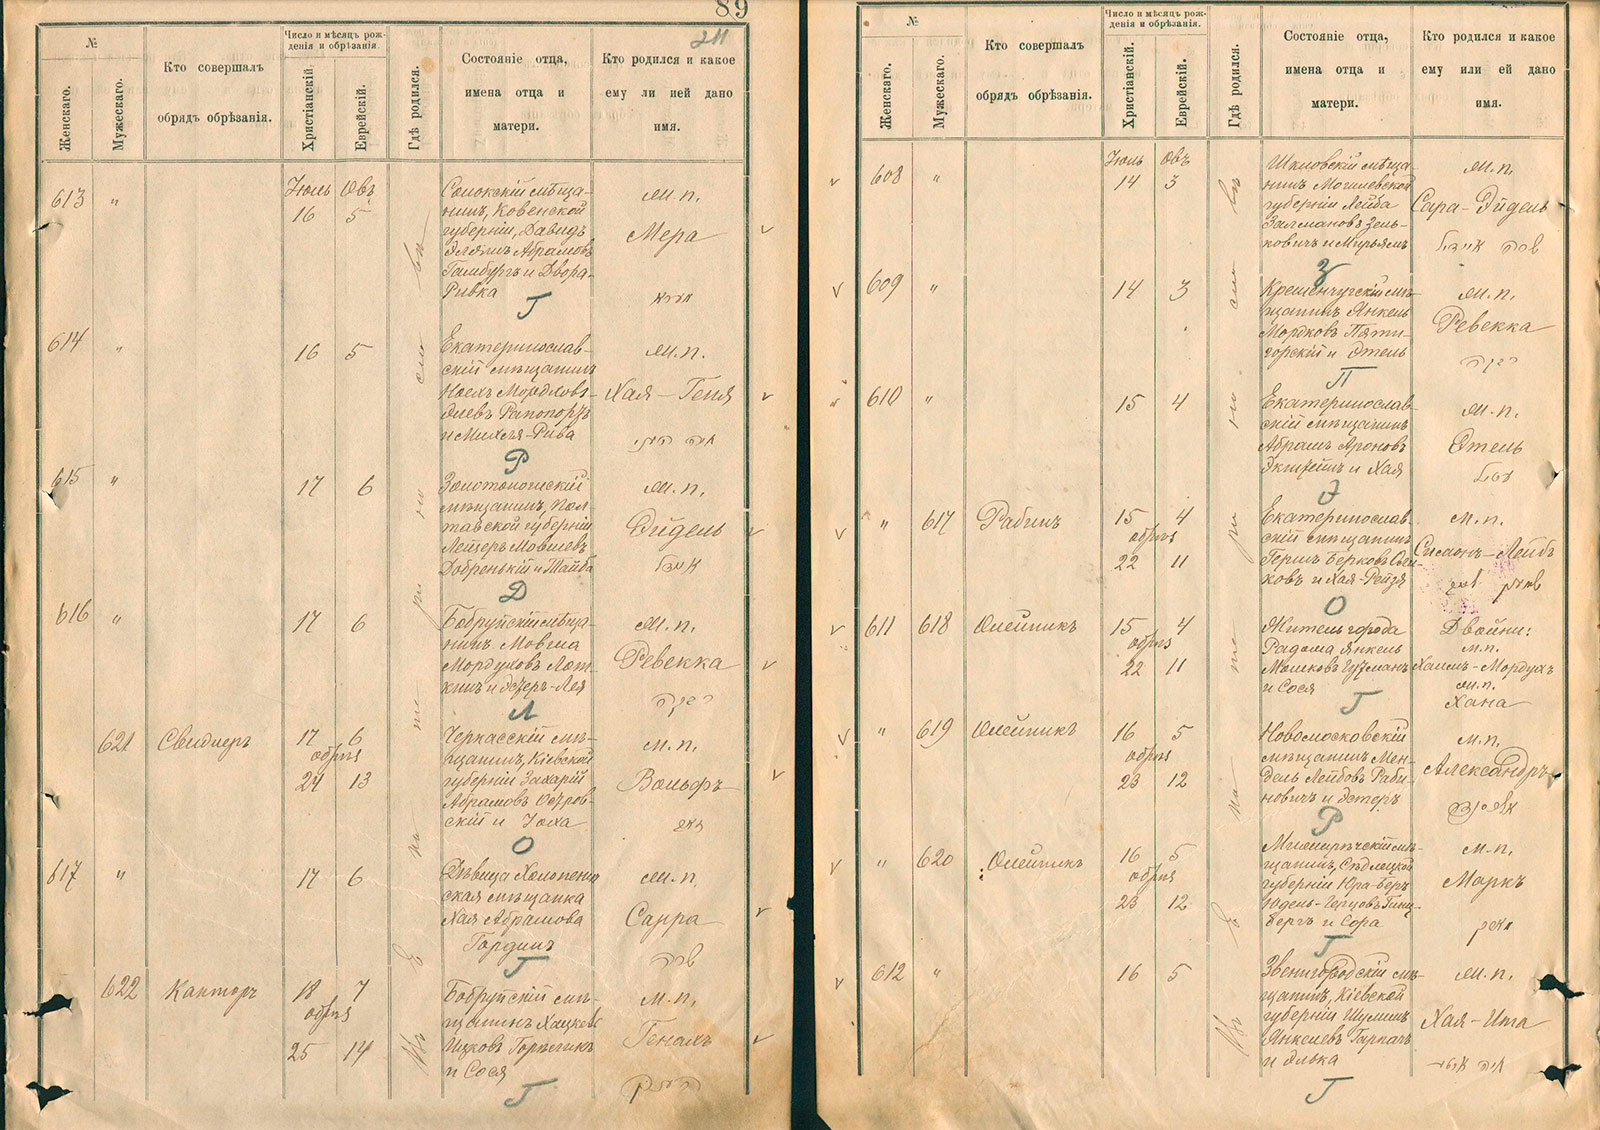 89
211
№
Женскаго.
Мужескаго.
Кто совершалъ
обрядъ обрѣзанія.
Число и мѣсяцъ рож-
денія и обрѣзанія.
Христіанскій.
Еврейскій.
Гдѣ родился.
Состояніе отца,
имена отца и
матери.
Кто родился и какое
ему ли ией дано
имя.
613
"
Іюль Овъ
16 5
нинъ, Ковенской
губерніи, Давидъ
Эліяшъ Абрамовъ
Гамбургъ и Двора-
Ривка
м.п.
Мера
Г
614
"
16 5
Екатеринослав-
скій мѣщанинъ
и Михля-Рива
м.п.
Хая-Геня
Р
615
"
17 6
Золотоношскій
мѣщанинъ, Пол-
тавской губерніи
Лейзеръ Мовшевъ
Добренькій и Тайба
м.п.
Эйдель
איידל
Д
616
"
17 6
Бобруйскій мѣща-
нинъ Мовша
Мордуховъ Лот-
кинъ и Эстеръ-Лея
м.п.
Ревекка
רבקה
Л
621
Свидлеръ
17 6
обрѣз
24 13
Черкасскій мѣ-
щанинъ, Кіевской
губерніи Захарій
Абрамовъ Остров-
скій и Іоха
м.п.
Вольфъ
О
617
"
17 6
Дѣвица Холопенич
ская мѣщанка
Хая Абрамова
Гординъ
м.п.
Сарра
שרה
Г
622
Канторъ
18 7
обрѣз
25 14
Бобруйскій мѣ-
щанинъ Хацкель
Ицковъ Горѣликъ
и Сося
м.п.
Генахъ
Г
№
Женскаго.
Мужескаго.
Кто совершалъ
обрядъ обрѣзанія.
Число и мѣсяцъ рож-
денія и обрѣзанія.
Христіанскій.
Еврейскій.
Гдѣ родился.
Состояніе отца,
имена отца и
матери.
Кто родился и какое
ему или ей дано
имя.
608
"
Іюль Овъ
14 3
Шкловскій мѣща-
нинъ Могилевской
губерніи Лейба
Залмановъ Зель-
ковичъ и Мирьямъ
м.п.
Сара-Эйдель
שרה איידל
З
609
"
14 3
Кременчугскій мѣ-
щанинъ Янкель
Мордковъ Пяти-
горскій и Этель
м.п.
Ревекка
רבקה
П
610
"
15 4
Екатеринослав-
скій мѣщанинъ
Абрамъ Ароновъ
м.п.
Этель
Э
"
617
Равинъ
15 4
обрѣз
22 11
Екатеринослав
скій мѣщанинъ
Гершъ Берковъ
ковъ и Хая-Рейзя
м.п.
Симонъ-Лейбъ
О
611
618
Олейникъ
15 4
обрѣз
22 11
Житель города
Радома Янкель
Мошковъ Гузманъ
и Сося
Двойни:
м.п.
Хаимъ-Мордухъ
м.п.
Хана
Г
"
619
Олейникъ
16 5
обрѣз
23 12
Новомосковскій
мѣщанинъ Мен-
дель Лейбовъ Раби-
новичъ и Эстеръ
м.п.
Александръ
Р
"
620
Олейникъ
16 5
обрѣз
23 12
щанинъ, Сѣдлецкой
губерніи Юра-Беръ
бергъ и Сора
м.п.
Маркъ
Г
612
"
16 5
Звенигородскій мѣ-
щанинъ, Кіевской
губерніи Шулимъ
Янкелевъ Гарпачъ
и Элька
м.п.
Хая-Ита
Г